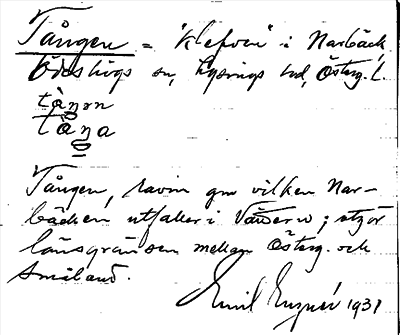 Tången = "Klefven" i Narbäck,
Ödeshögs sn, Lysings hd, Österg. l.
tàŋən
tàŋa
Tången, ravin gm vilken Nar-
bäcken utfaller i Vättern; utgör
länsgränsen mellan Österg. och
Småland.
Emil 1931